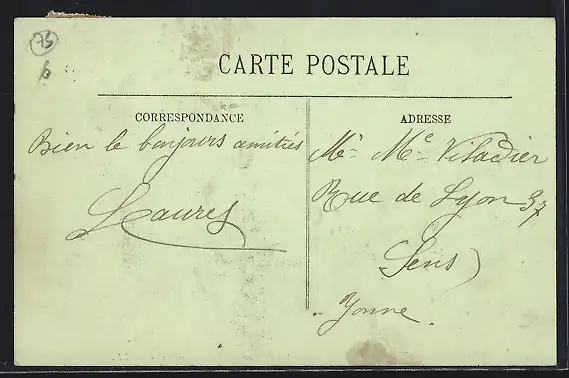 75
6
CARTE POSTALE
CORRESPONDANCE
Bien le bonjours amitiés
Laures
ADRESSE
Mr Me Viladier
Rue de Lyon 37
Sens
Yonne.